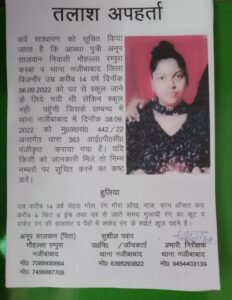 तलाश अपहर्ता
सर्व साधारण को सूचित किया
जाता है कि आस्था पुत्री अनूप
सालवान निवासी मोहल्ला रम्पुरा
कस्बा व थाना नजीबाबाद जिला
बिजनौर उम्र करीब 14 वर्ष दिनॉक
06.09.2022 को घर से स्कूल जाने
के लिये गयी थी लेकिन स्कूल
नही पहुँची जिसके सम्बन्ध में
थाना नजीबाबाद मे दिनॉक 08.09.
2022 को मु0अ0सं0 442/22
अन्तर्गत धारा 363 आई0पी0सी0
पंजीकृत कराया गया है। यदि
किसी को जानकारी मिले तो निम्न
नम्बरों पर सूचित करने का कष्ट
करें।
हुलिया
उम्र करीब 14 वर्ष चेहरा गोल, रंग गोरा आँख, नाक, कान औसत कद
करीब 4 फिट 8 इंच तथा घर से जाते समय गुलाबी रंग का सूट व
सफेद रंग की सलवार व पैरों में सफेद रंग के स्पोर्ट शूज पहने है।
अनूप सालवान (पिता) सुशील पवार
मौहल्ला रम्पुरा उ0नि0 /जॉचकर्ता प्रभारी निरीक्षक
थाना नजीबाबाद थाना नजीबाबाद थाना नजीबाबाद
मो0 7088930864 मो0 6395293822 मो0 9454403139
मो0 7456887705